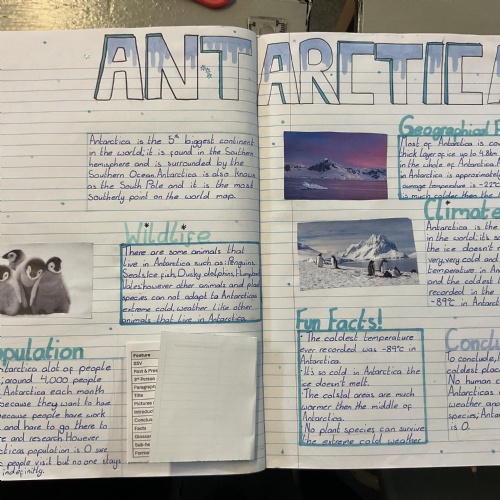 ANTARCTICA
Antarctica is the 5th biggest continent
in the world, it is found in the Southern
hemisphere and is surrounded by the
Southern Ocean. Antarctica is also known
as the South Pole and it is the most
Southerly point on the world map.
Wildlife
There are some animals that
live in Antarctica such as: Penguins,
Seals, Ice fish, Dusky dolphins, Humpback
Whales however other animals and plant
species can not adapt to Antarctica's
extreme cold weather. Like other
animals that live in Antarctica
opulation
ntarctica alot of people
around 4,000 people
Antarctica each month
because they want to have
because people have work
and have to go there to
re and research. However
cticas population is 0 sure
people visit but no one stays
indefinitely.
Feature
SSV
Past & Pres
3rd Person
Paragraph
Title
Pictures
Introduc
Conclus
Facts
Glossar
Sub-he
Formal
Geographical F
Most of Antarctica is cov
thick layer of ice up to 4.8km
in the whole of Antarctica.
in Antarctica is approximatel
average temperature is -22°
is much colder then the
Climate
Antarctica is the
in the world, it's so
the ice doesn't m
very, very cold and
temperature in An
and the coldest t
recorded in the
-89°C in Antarct
Fun Facts!
• The coldest temperature
ever recorded was -89°C in
Antarctica.
• It's so cold in Antarctica the
ice doesn't melt.
• The coastal areas are much
warmer then the middle of
Antarctica.
• No plant species can survive
the extreme cold weather.
Conclu
To conclude,
coldest place
No human
Antarctica's
weather and
species, Antar
is 0.